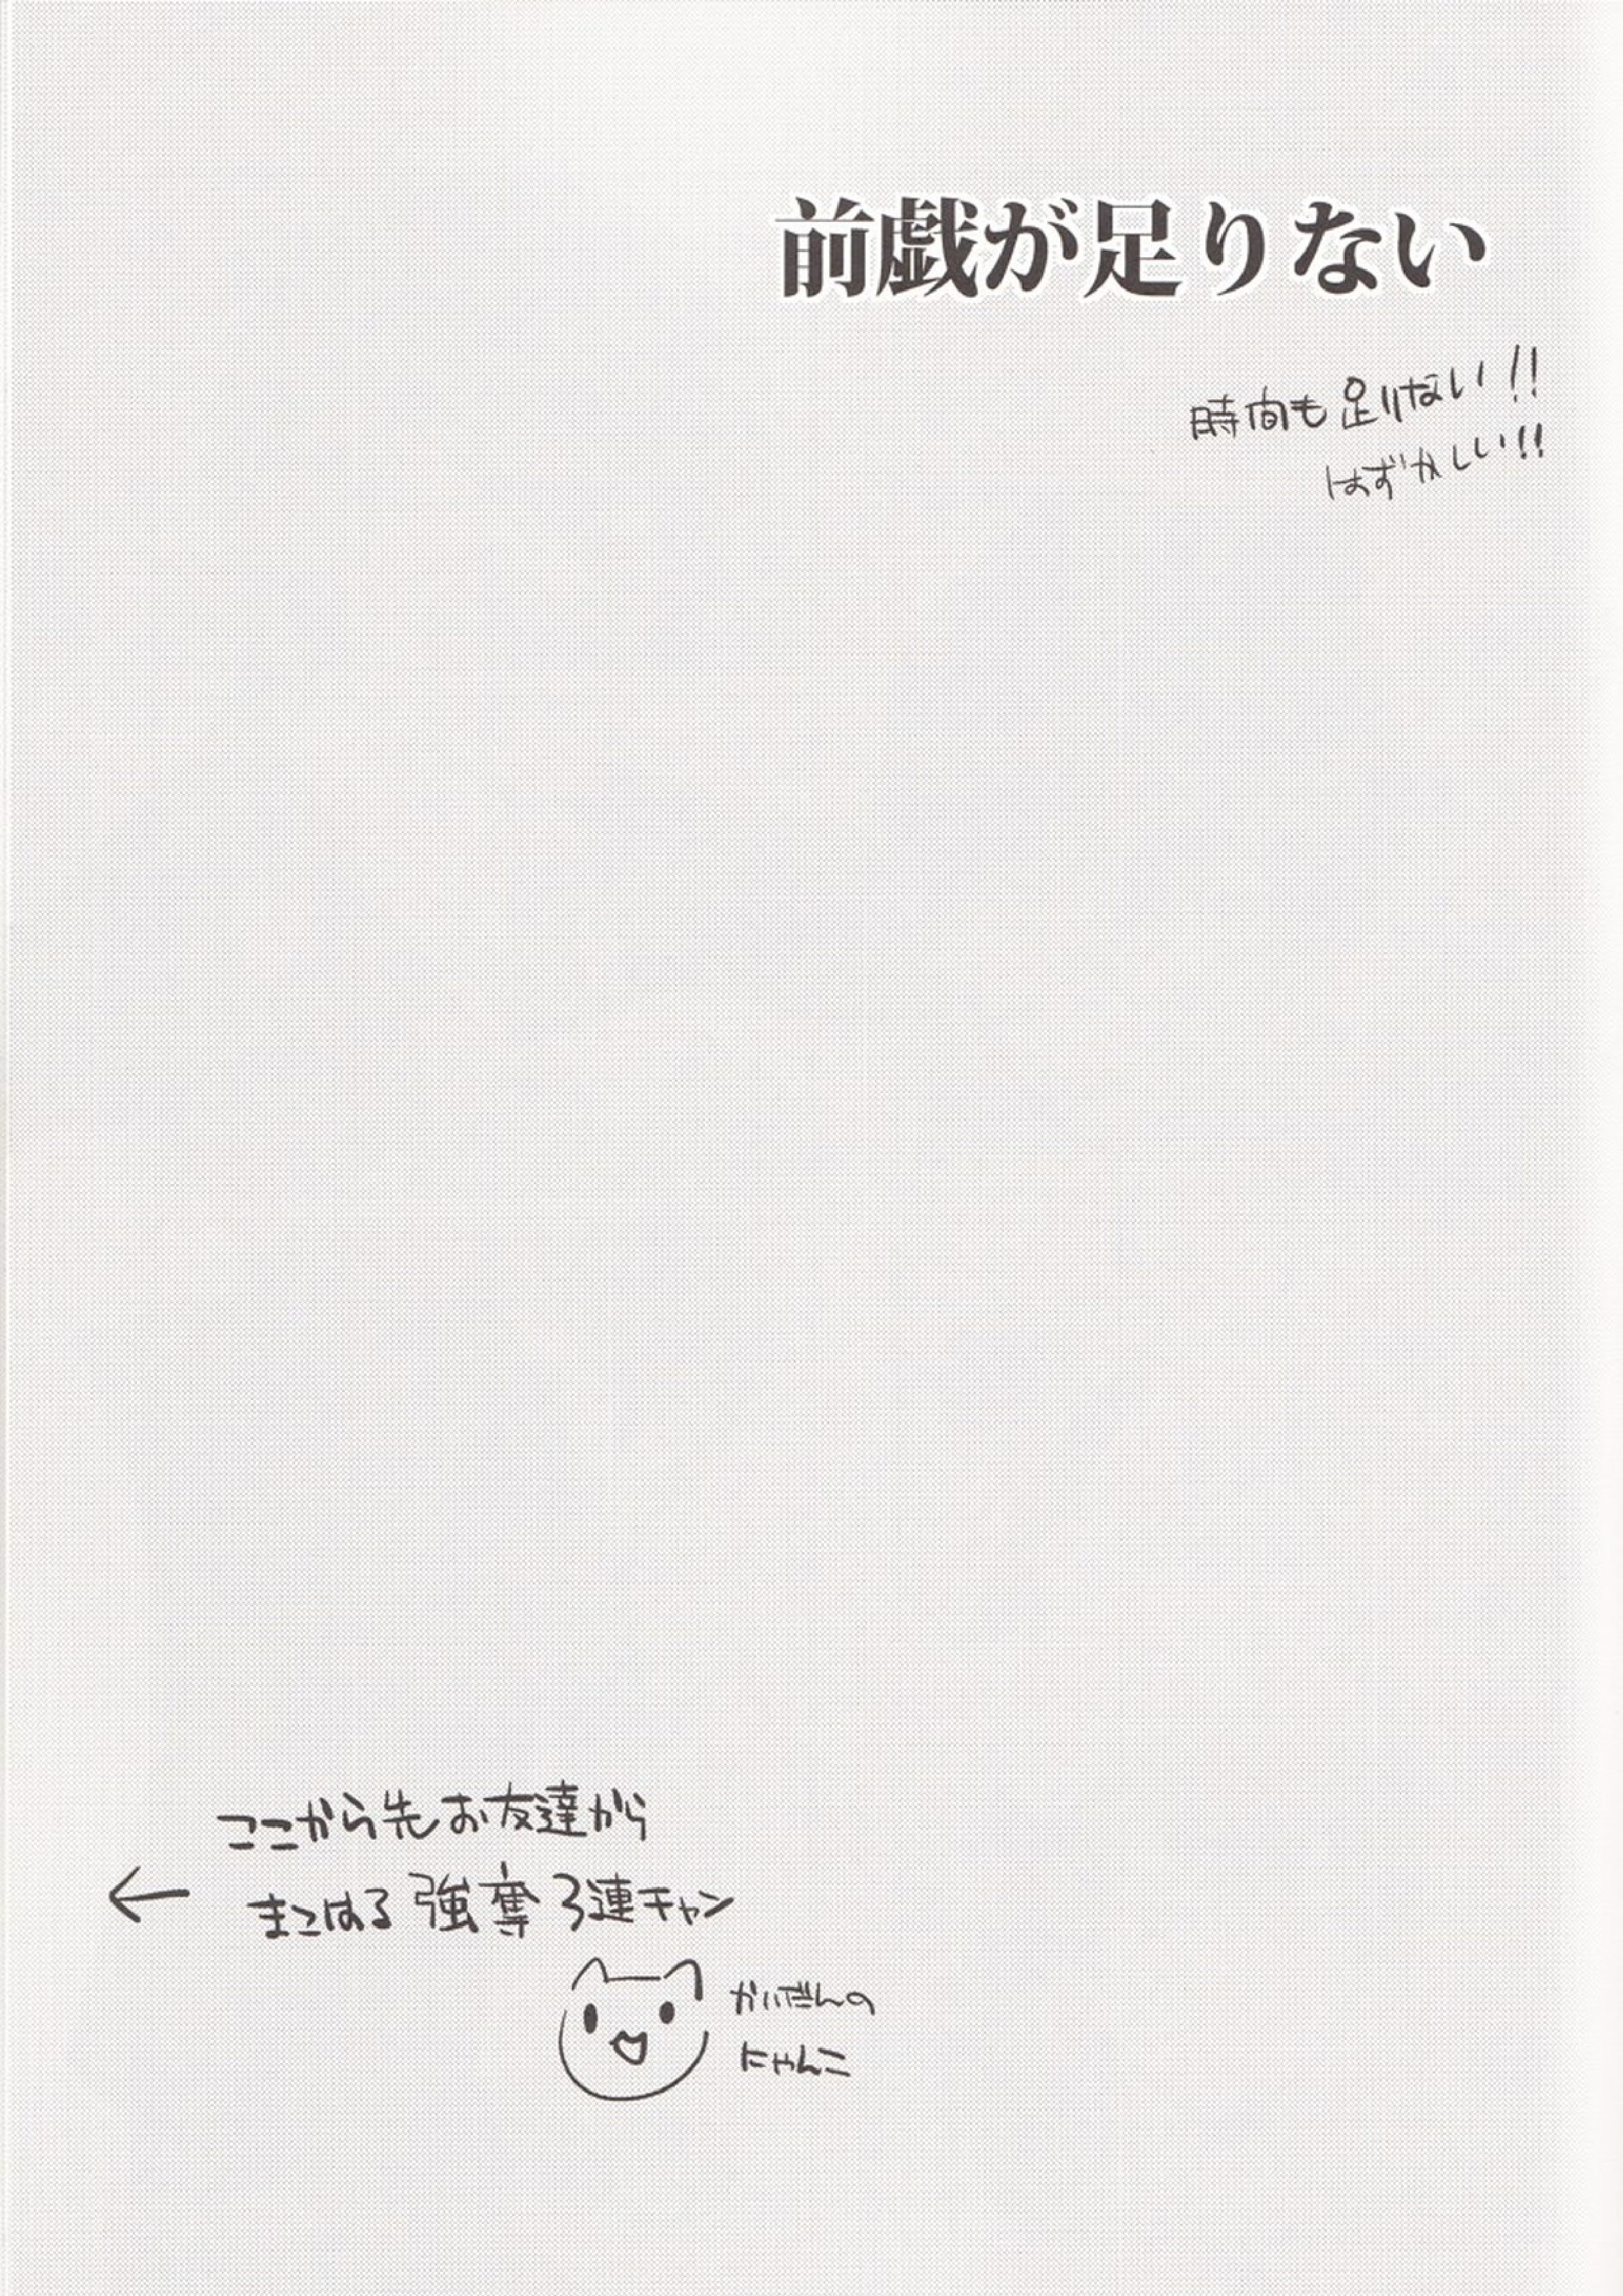 前戯が足りない
時間も足りない!!
はずかしい!!
ここから先お友達から
← まこはる強奪3連チャン
かいぜんの
にゃんこ